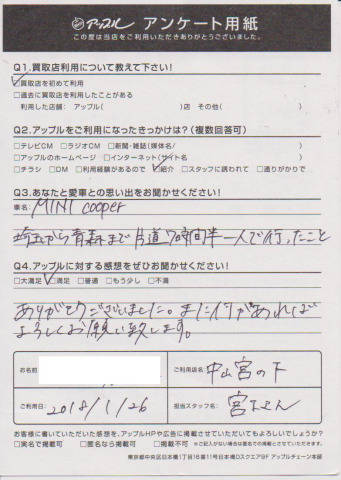 アップル アンケート用紙
この度は当店をご利用いただきありがとうございました。
Q1.買取店利用について教えて下さい!
☑買取店を初めて利用
□過去に買取店を利用したことがある
利用した店舗: アップル( )店 その他( )
Q2.アップルをご利用になったきっかけは?(複数回答可)
□テレビCM □ラジオCM □新聞・雑誌(媒体名/ )
□アップルのホームページ □インターネット(サイト名 )
□チラシ □DM □利用経験があるので ☑紹介 □スタッフに誘われて □通りがかりで
Q3.あなたと愛車との思い出をお聞かせください!
車名: MINI cooper
埼玉から青森まで片道7時間半一人で行ったこと
Q4.アップルに対する感想をぜひお聞かせください!
□大満足 ☑満足 □普通 □もう少し □不満
ありがとうございました。また何かあれば
よろしくお願い致します。
お名前
ご利用店名: 中山宮の下
ご利用日: 2018/1/26
担当スタッフ名: 宮下さん
お客様に書いていただいた感想を、アップルHPや広告に掲載させていただいてもよろしいでしょうか?
□実名で掲載可 □匿名なら掲載可 □掲載不可 ※ご記入がない場合は匿名掲載可とさせていただきます。
東京都中央区日本橋1丁目16番11号日本橋Dスクエア9F アップルチェーン本部